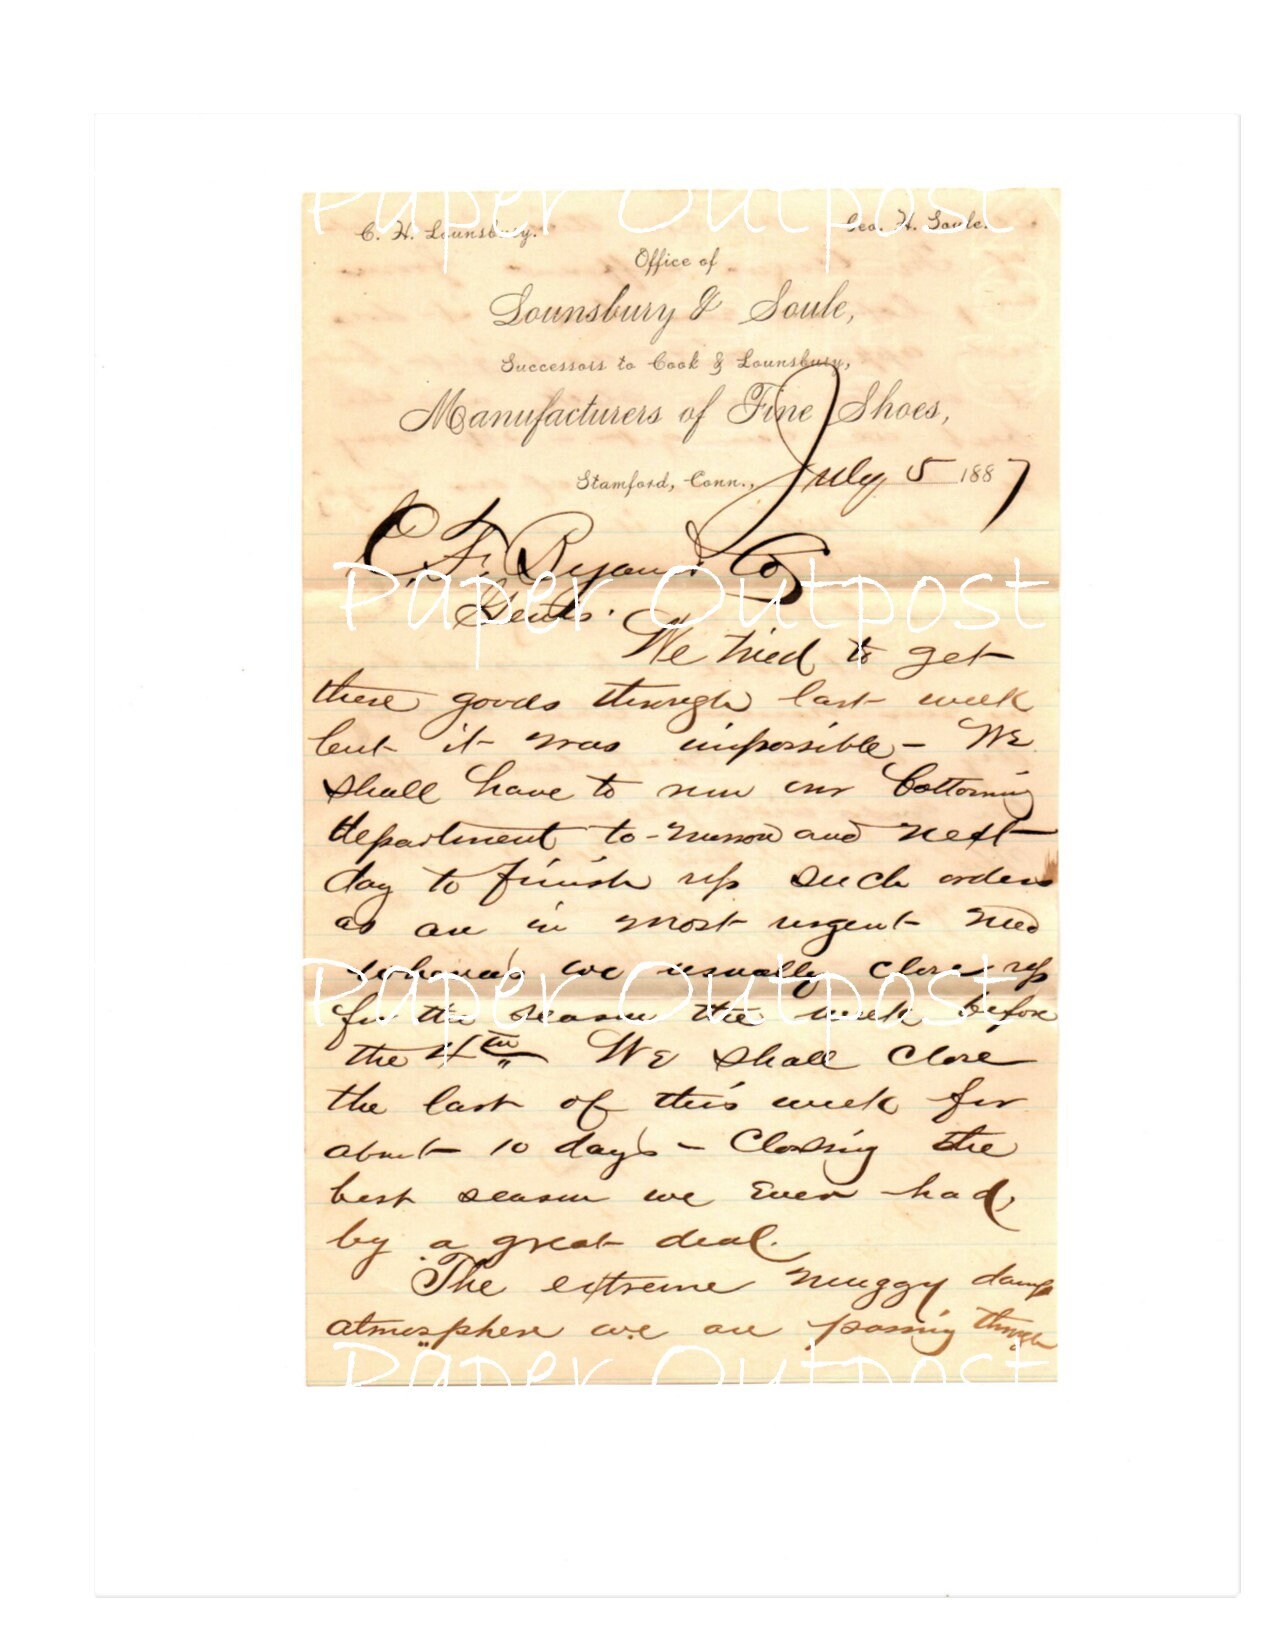 C. H. Lounsbury. Geo. H. Soule.
Office of
Lounsbury & Soule,
Successors to Cook & Lounsbury,
Manufacturers of Fine Shoes,
Stamford, Conn., July 5 1887
C. F. Ryan & Co
Gents.
We tried to get
these goods through last week
but it was impossible – We
shall have to run our bottoming
department to-morrow and next
day to finish up such orders
as are in most urgent need
whereas we usually close up
for the season the week before
the 4th We shall close
the last of this week for
about 10 days – Closing the
best season we ever had,
by a great deal.
The extreme muggy damp
atmosphere we are passing through
Paper Outpost
Paper Outpost
Paper Outpost
Paper Outpost